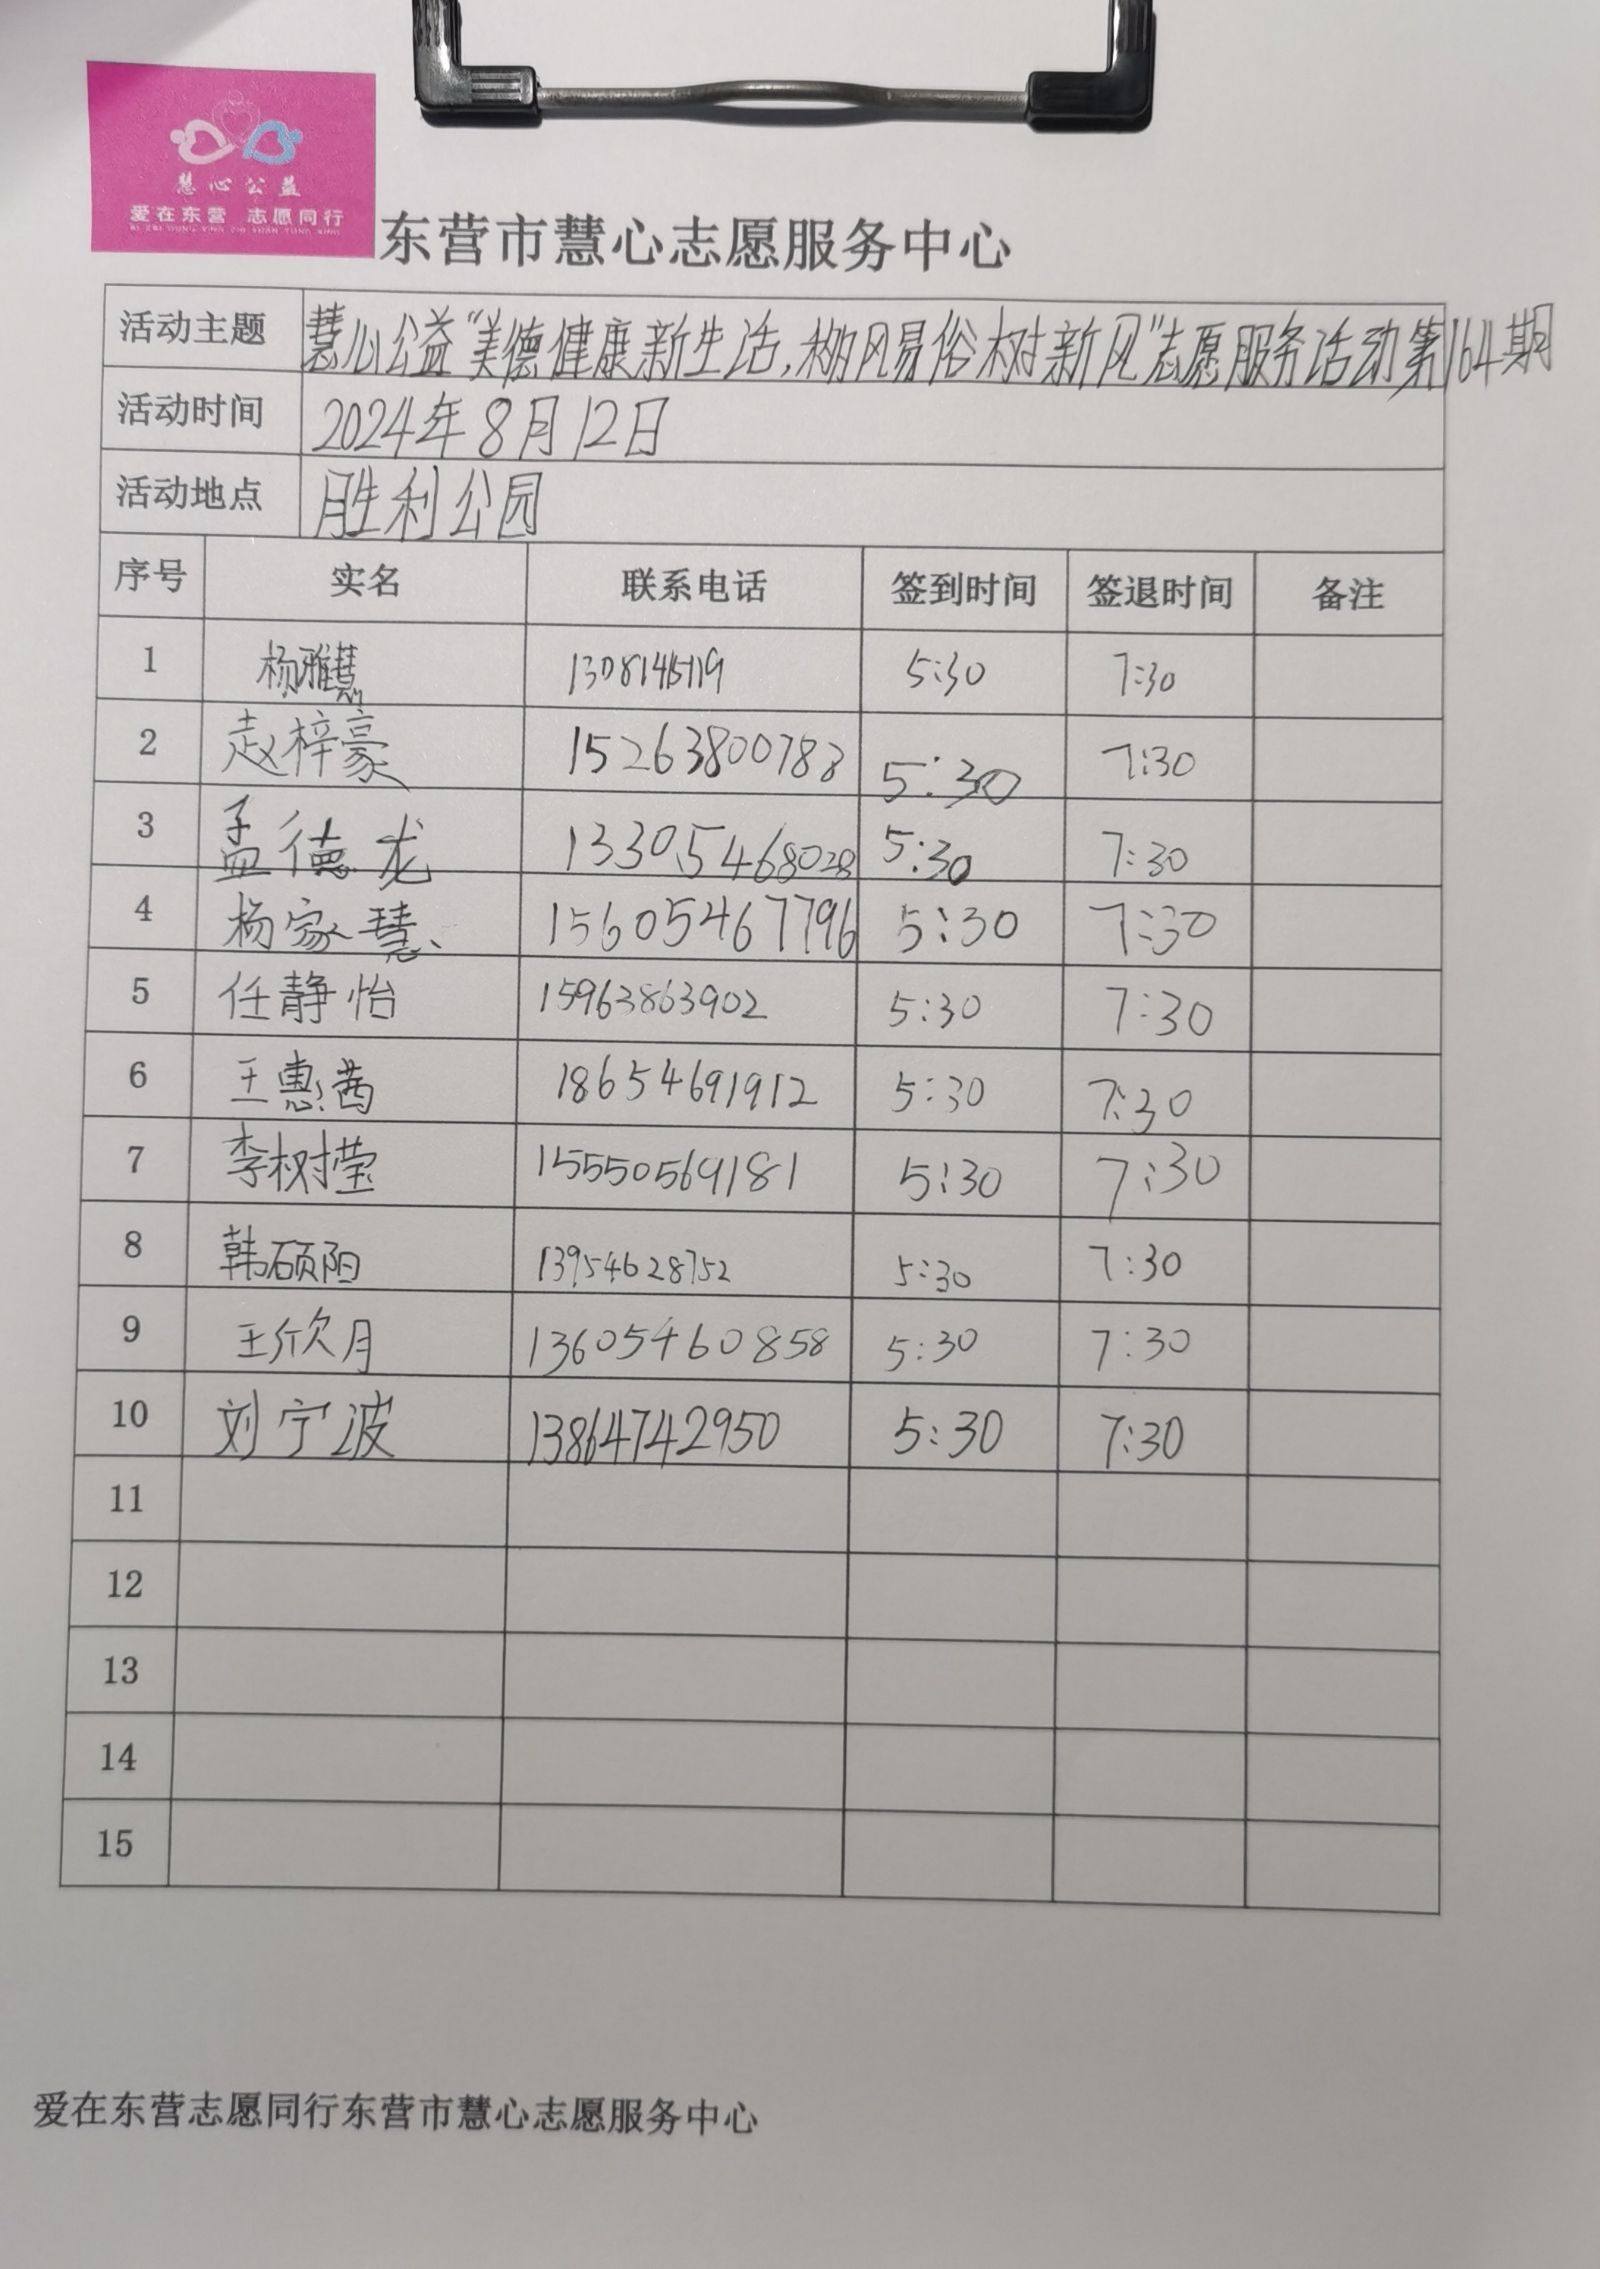 慧心公益
爱在东营 志愿同行
AI ZAI DONG YING ZHI YUAN TONG XING
东营市慧心志愿服务中心
活动主题 慧心公益“美德健康新生活,移风易俗树新风”志愿服务活动第164期
活动时间 2024年8月12日
活动地点 胜利公园
序号 实名 联系电话 签到时间 签退时间 备注
1 杨雅慧 5:30 7:30
2 赵梓豪 15263800783 5:30 7:30
3 孟德龙 13305468028 5:30 7:30
4 杨家慧 15605467796 5:30 7:30
5 任静怡 15963863902 5:30 7:30
6 王惠茜 18654691912 5:30 7:30
7 李树莹 15550569181 5:30 7:30
8 韩硕阳 13954628752 5:30 7:30
9 王欣月 13605460858 5:30 7:30
10 刘宁波 13864742950 5:30 7:30
11
12
13
14
15
爱在东营志愿同行东营市慧心志愿服务中心